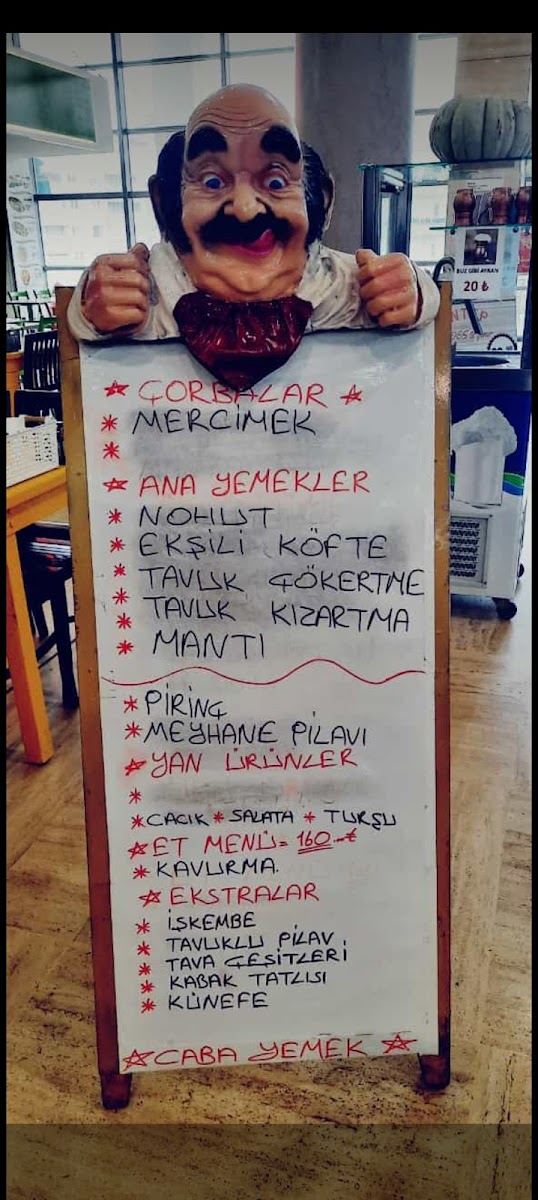 BUZ GİBİ AYRAN
20 ₺
★ ÇORBALAR ★
* MERCİMEK
*
★ ANA YEMEKLER
* NOHUT
* EKŞİLİ KÖFTE
* TAVUK ÇÖKERTME
* TAVUK KIZARTMA
* MANTI
* PİRİNÇ
* MEYHANE PİLAVI
★ YAN ÜRÜNLER
*
* CACIK * SALATA * TURŞU
★ ET MENÜ = 160.-₺
* KAVURMA.
★ EKSTRALAR
* İŞKEMBE
* TAVUKLU PİLAV
* TAVA ÇEŞİTLERİ
* KABAK TATLISI
* KÜNEFE
★ CABA YEMEK ★